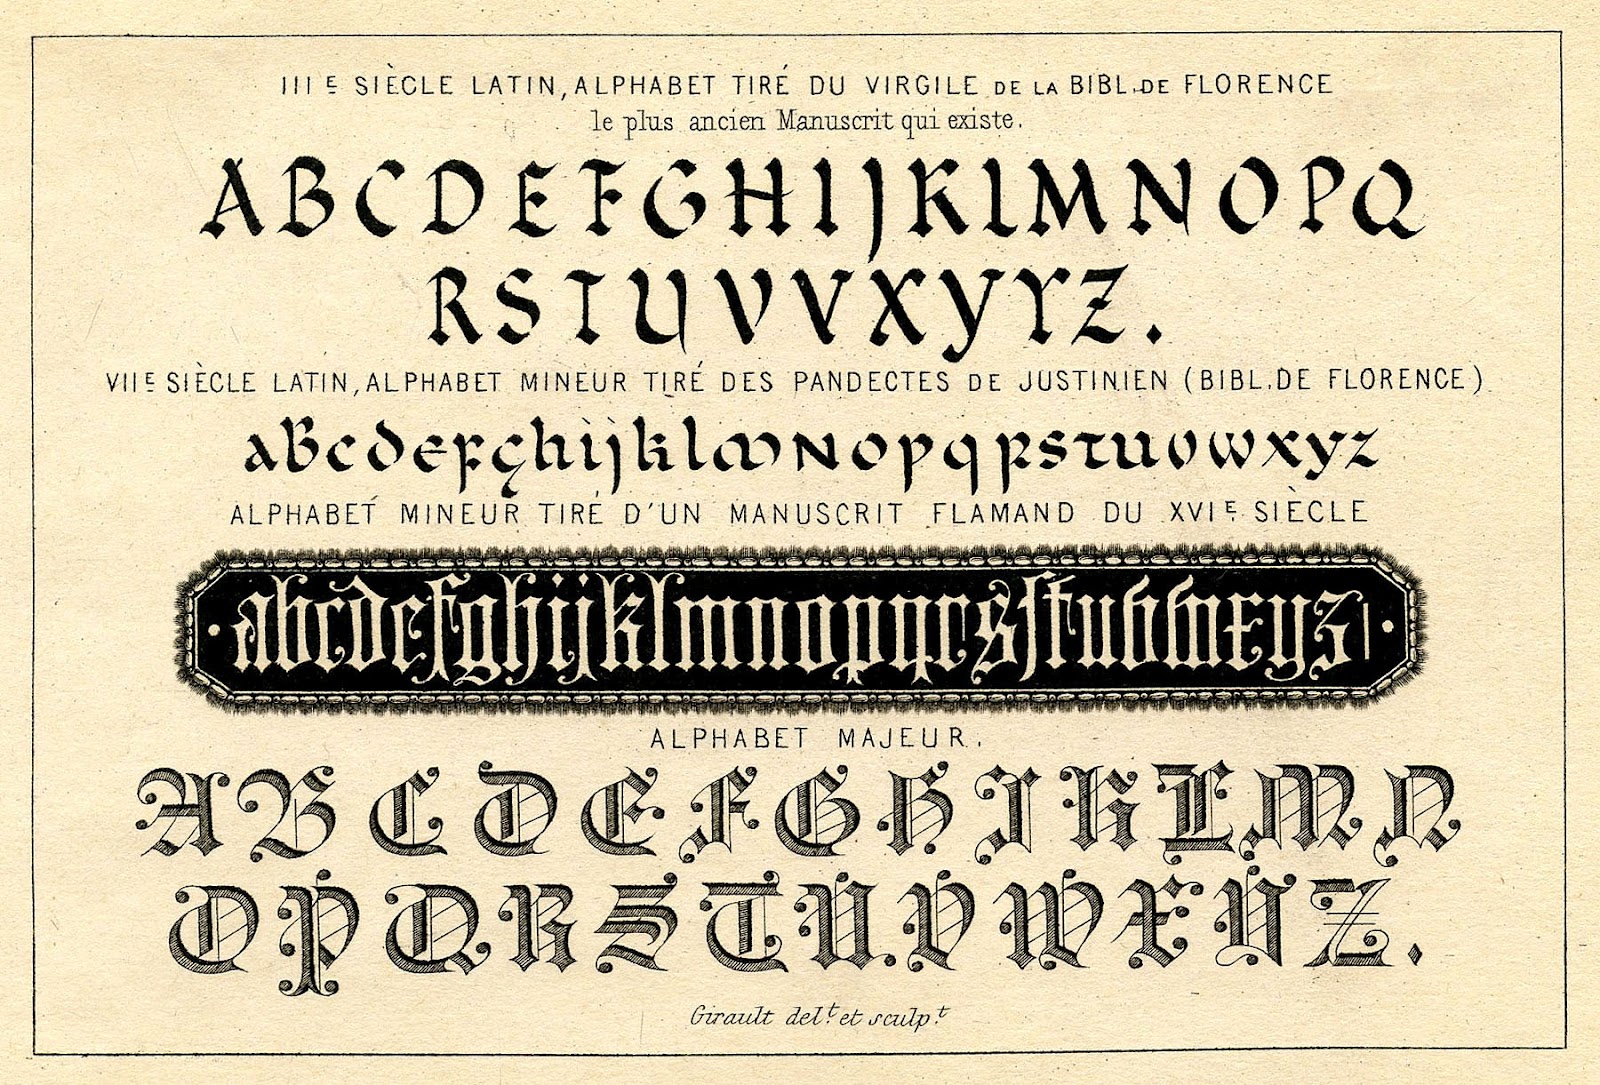 IIIE SIÈCLE LATIN, ALPHABET TIRÉ DU VIRGILE DE LA BIBL. DE FLORENCE
le plus ancien Manuscrit qui existe.
ABCDEFGHIJKLMNOPQ
RSTUVVXYYZ.
VIIE SIÈCLE LATIN, ALPHABET MINEUR TIRÉ DES PANDECTES DE JUSTINIEN (BIBL. DE FLORENCE)
abcdefghijklmnopqrstuvwxyz
ALPHABET MINEUR TIRÉ D'UN MANUSCRIT FLAMAND DU XVIE SIÈCLE
abcdefghijklmnopqrsſtuvwxyz
ALPHABET MAJEUR.
ABCDEFGHJKLMN
OPQRSTUVWXYZ.
Girault delt. et sculpt.